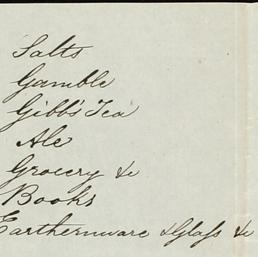 Salts
Gamble
Gibb's Tea
Ale
Grocery &c
Books
Earthernware & Glass &c